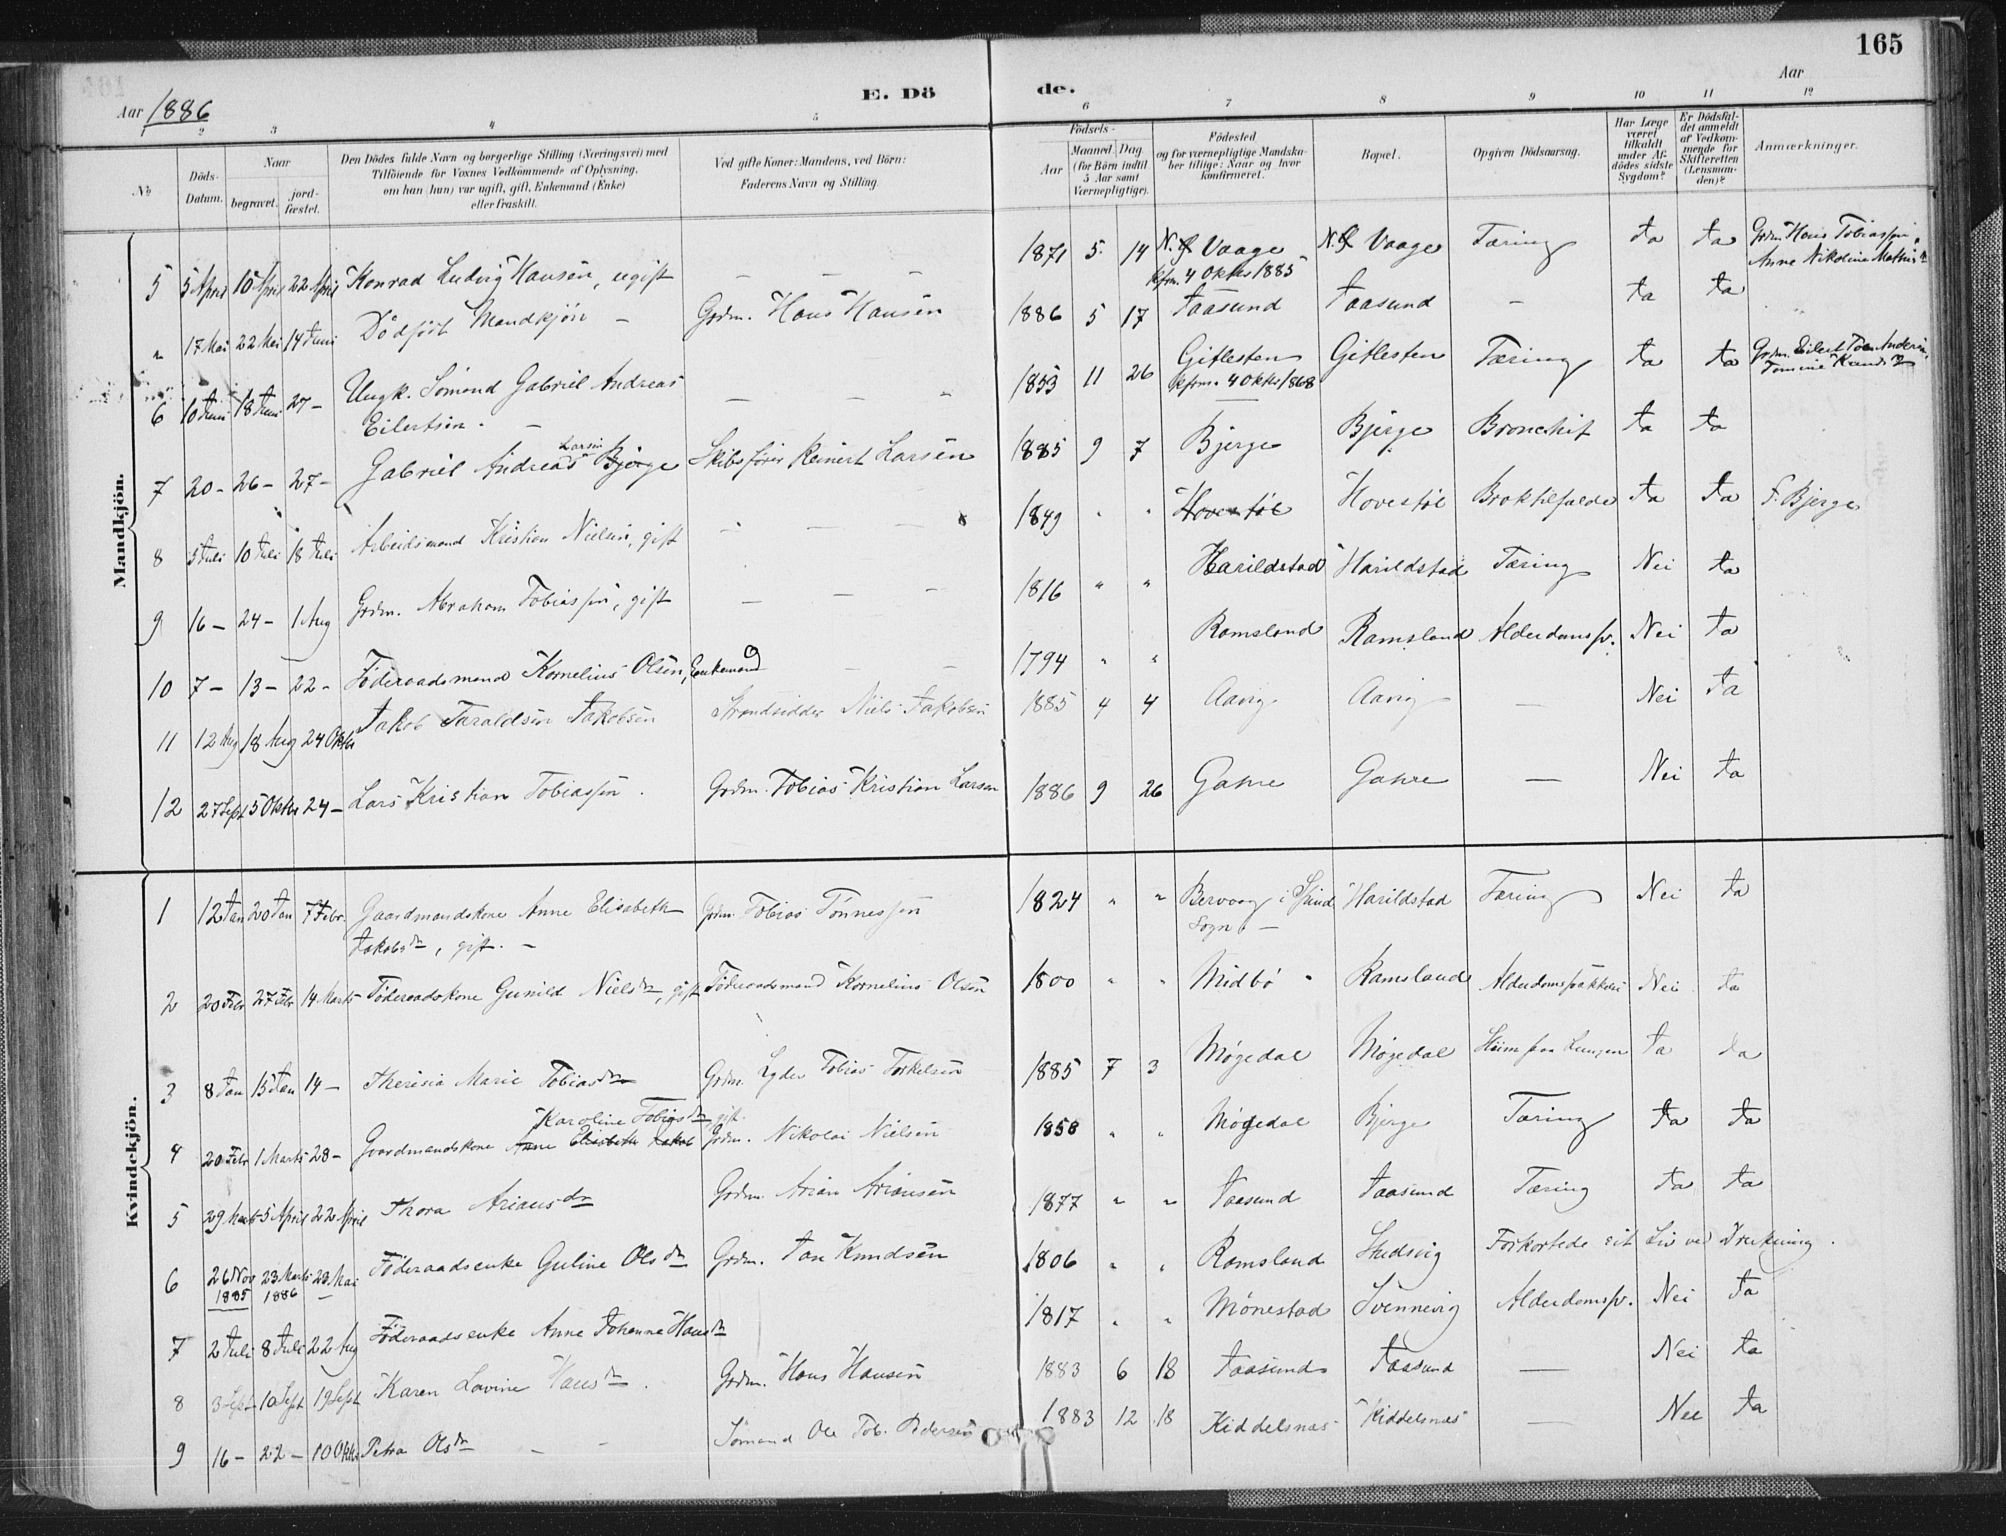 165
Aar 1886
E. Dö de.
Aar
2 3 4 5 6 7 8 9 10 11 12
No
Döds-Datum.
Naar begravet. jord-fæstet.
Den Dödes fulde Navn og borgerlige Stilling (Næringsvei) med Tilföiende for Voxnes Vedkommende af Oplysning, om han (hun) var ugift, gift, Enkemand (Enke) eller fraskilt.
Ved gifte Koner: Mandens, ved Börn: Faderens Navn og Stilling.
Födsels- Aar Maaned. Dag. (for Börn indtil 5 Aar samt Værnepligtige).
Födested og for værnepligtige Mandskaber tillige: Naar og hvor konfirmeret.
Bopæl.
Opgiven Dödsaarsag.
Har Læge været tilkaldt under Afdödes sidste Sygdom?
Er Dödsfaldet anmeldt af Vedkommende for Skifteretten (Lensmanden)?
Anmærkninger.
Mandkjön.
5 5 April 10 April 22 April Konrad Ludvig Hansen, ugift — — 1871 5 14 Vaage Vaage Tæring Ja Ja Grdm Hans Tobiassen
kfrm. 4 Oktbr 1885 Anne Nikoline
" 17 Mai 22 Mai 14 Juni Dödfödt Mandkjön — Grdm. Hans Hansen 1886 5 17 Jaasund Jaasund — Ja Ja
6 10 Juni 18 Juni 27 — Ungk. Sömand Gabriel Andreas Eilertsen. — 1853 11 26 Gitlesten Gitlesten Tæring Ja Ja Grdm. Eilert
kfrm. 4 Oktbr 1868
7 20 — 26 — 27 — Gabriel Andreas Larsen Bjerge Skibsförer Reinert Larsen 1885 9 7 Bjerge Bjerge Bronchit Ja Ja
8 5 Juli 10 Juli 18 Juli Arbeidsmand Kristian Nielsen, gift — — 1849 " " Hovestöl Hovestöl Ja Ja F. Bjerge
9 16 — 24 — 1 Aug Grdm. Abraham Tobiassen, gift — — — 1816 " " Harildstad Harildstad Tæring Nei Ja
10 7 — 13 — 22 — Föderaadsmand Kornelius Olsen, Enkemand — — 1794 " " Ramsland Ramsland Alderdomssv. Nei Ja
11 12 Aug 18 Aug 24 Oktbr Jakob Taraldsen Jakobsen Strandsidder Niels Jakobsen 1885 4 4 Aavig Aavig — Nei Ja
12 27 Sept 5 Oktbr 24 — Lars Kristian Tobiassen. Grdm. Tobias Kristian Larsen 1886 9 26 Gahre Gahre — Nei Ja
Kvindekjön.
1 12 Jan 20 Jan 7 Febr. Gaardmandskone Anne Elisabeth Grdm. Tobias Tönnessen 1824 " " Bervaag i Spind Harildstad Tæring Nei Ja
Jakobsdr, gift. — Sogn —
2 20 Febr 27 Febr 14 Marts Föderaadskone Gunild Nielsdr, gift Föderaadsmand Kornelius Olsen 1800 " " Midbö Ramsland Alderdomssvækkelse Nei Ja
3 8 Jan 15 Jan 14 — Theresia Marie Tobiasdr Grdm. Lyder Tobias Torkelsen 1885 7 3 Mögedal Mögedal Ja Ja
Karoline Tobiasdr gift.
4 20 Febr 1 Marts 28 — Gaardmandskone Anne Elisabeth Jakob Grdm. Nikolai Nielsen 1858 " " Mögedal Bjerge Tæring Ja Ja
5 29 Marts 5 April 22 April Thora Ariansdr Grdm. Arian Ariansen 1877 " " Jaasund Jaasund Tæring Ja Ja
6 26 Nov 1885 23 Marts 1886 23 Mai Föderaadsenke Guline Olsdr Grdm. Jan Knudsen 1806 " " Ramsland Studsvig Forkortede sit Liv ved Drukning.
7 2 Juli 8 Juli 22 Aug Föderaadsenke Anne Johanne Hansdr 1817 " " Mönestad Svennevig Alderdomssv. Nei Ja
8 3 Sept 10 Sept 19 Sept Karen Lovine Hansdr. Grdm. Hans Hansen 1883 6 18 Jaasund Jaasund — Nei Ja
9 16 — 22 — 10 Oktbr Petra Olsdr — — Sömand Ole Tob. Pedersen 1883 12 18 Kiddelsnæs Kiddelsnæs — Nei Ja